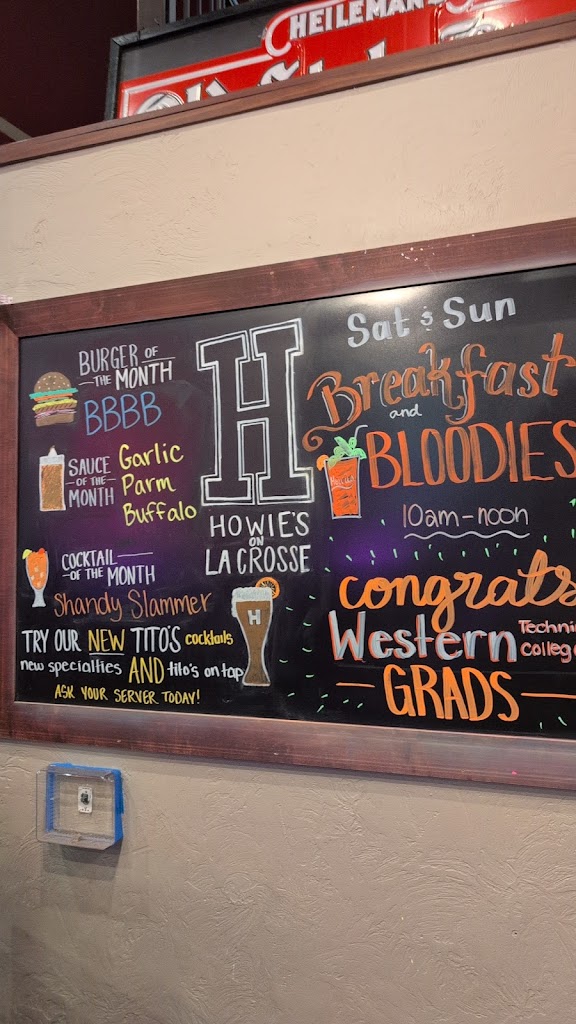 HEILEMAN'S
BURGER OF
THE MONTH
BBBB
SAUCE
OF THE
MONTH
Garlic
Parm
Buffalo
COCKTAIL
OF THE MONTH
Shandy Slammer
TRY OUR NEW TITO'S cocktails
new specialties AND tito's on tap
ASK YOUR SERVER TODAY!
H
HOWIE'S
ON
LA CROSSE
H
Sat & Sun
Breakfast
and
BLOODIES
10am-noon
congrats
Western
GRADS